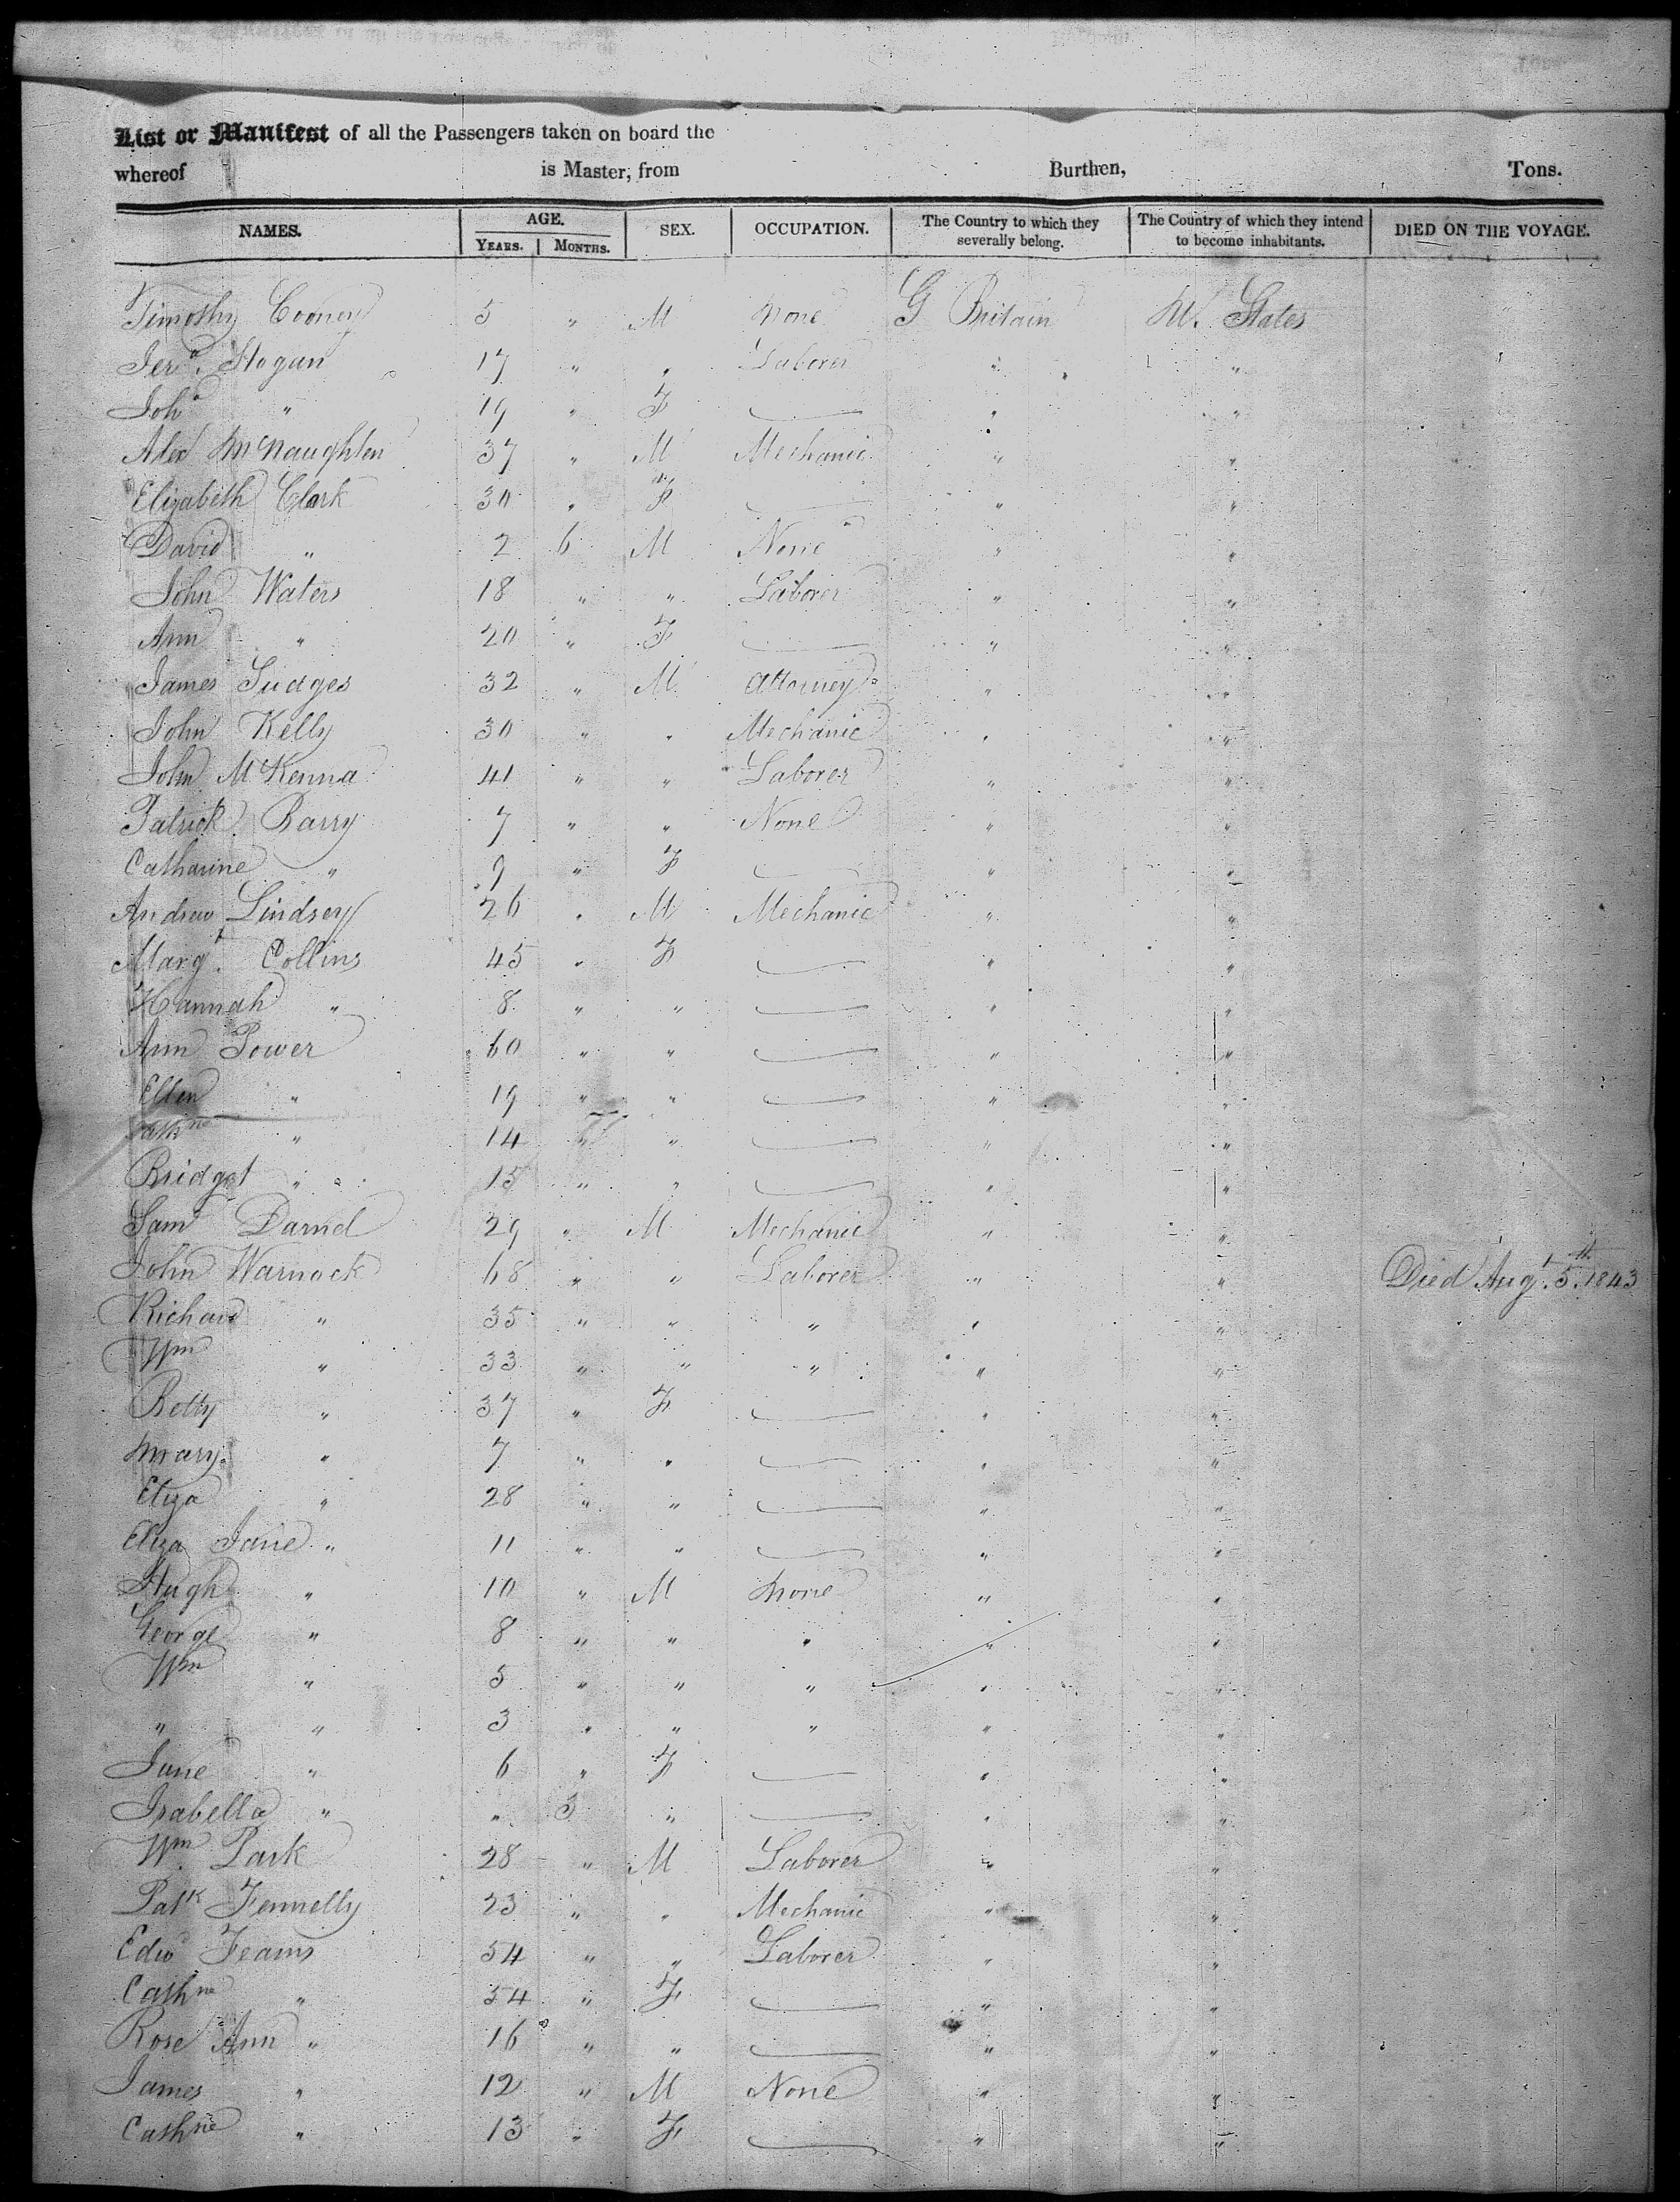 List or Manifest of all the Passengers taken on board the
whereof is Master, from Burthen, Tons.
NAMES. AGE. SEX. OCCUPATION. The Country to which they severally belong. The Country of which they intend to become inhabitants. DIED ON THE VOYAGE.
YEARS. MONTHS.
Timothy Cooney 5 " M None G Britain U. States
Jera. Hogan 17 " " Laborer " "
Joha " 19 " F — " "
Alex McNaughten 37 " M Mechanic " "
Elizabeth Clark 30 " F — " "
David " 2 6 M None " "
John Waters 18 " " Laborer " "
Ann " 20 " F — " "
James Judges 32 " M Attorney " "
John Kelly 30 " " Mechanic " "
John McKenna 41 " " Laborer " "
Patrick Barry 7 " " None " "
Catharine " 9 " F — " "
Andrew Lindsey 26 " M Mechanic " "
Margt. Collins 45 " F — " "
Hannah " 8 " " — " "
Ann Power 60 " " — " "
Ellen " 19 " " — " "
Cathne " 14 " " — " "
Bridget " 15 " " — " "
Saml 29 " M Mechanic " "
John Warnock 68 " " Laborer " " Died Augt. 5th. 1843
Richard " 35 " " " " "
Wm " 33 " " " " "
Betty " 37 " F — " "
Mary " 7 " " — " "
Eliza " 28 " " — " "
Eliza Jane " 11 " " — " "
Hugh " 10 " M None " "
George " 8 " " " " "
Wm " 5 " " " " "
" " 3 " " " " "
Jane " 6 " F — " "
Isabella " " 3 " — " "
Wm. Park 28 " M Laborer " "
Patk Fennelly 23 " " Mechanic " "
Edwd Feams 54 " " Laborer " "
Cathne " 54 " F — " "
Rose Ann " 16 " " — " "
James " 12 " M None " "
Cathne " 13 " F — " "